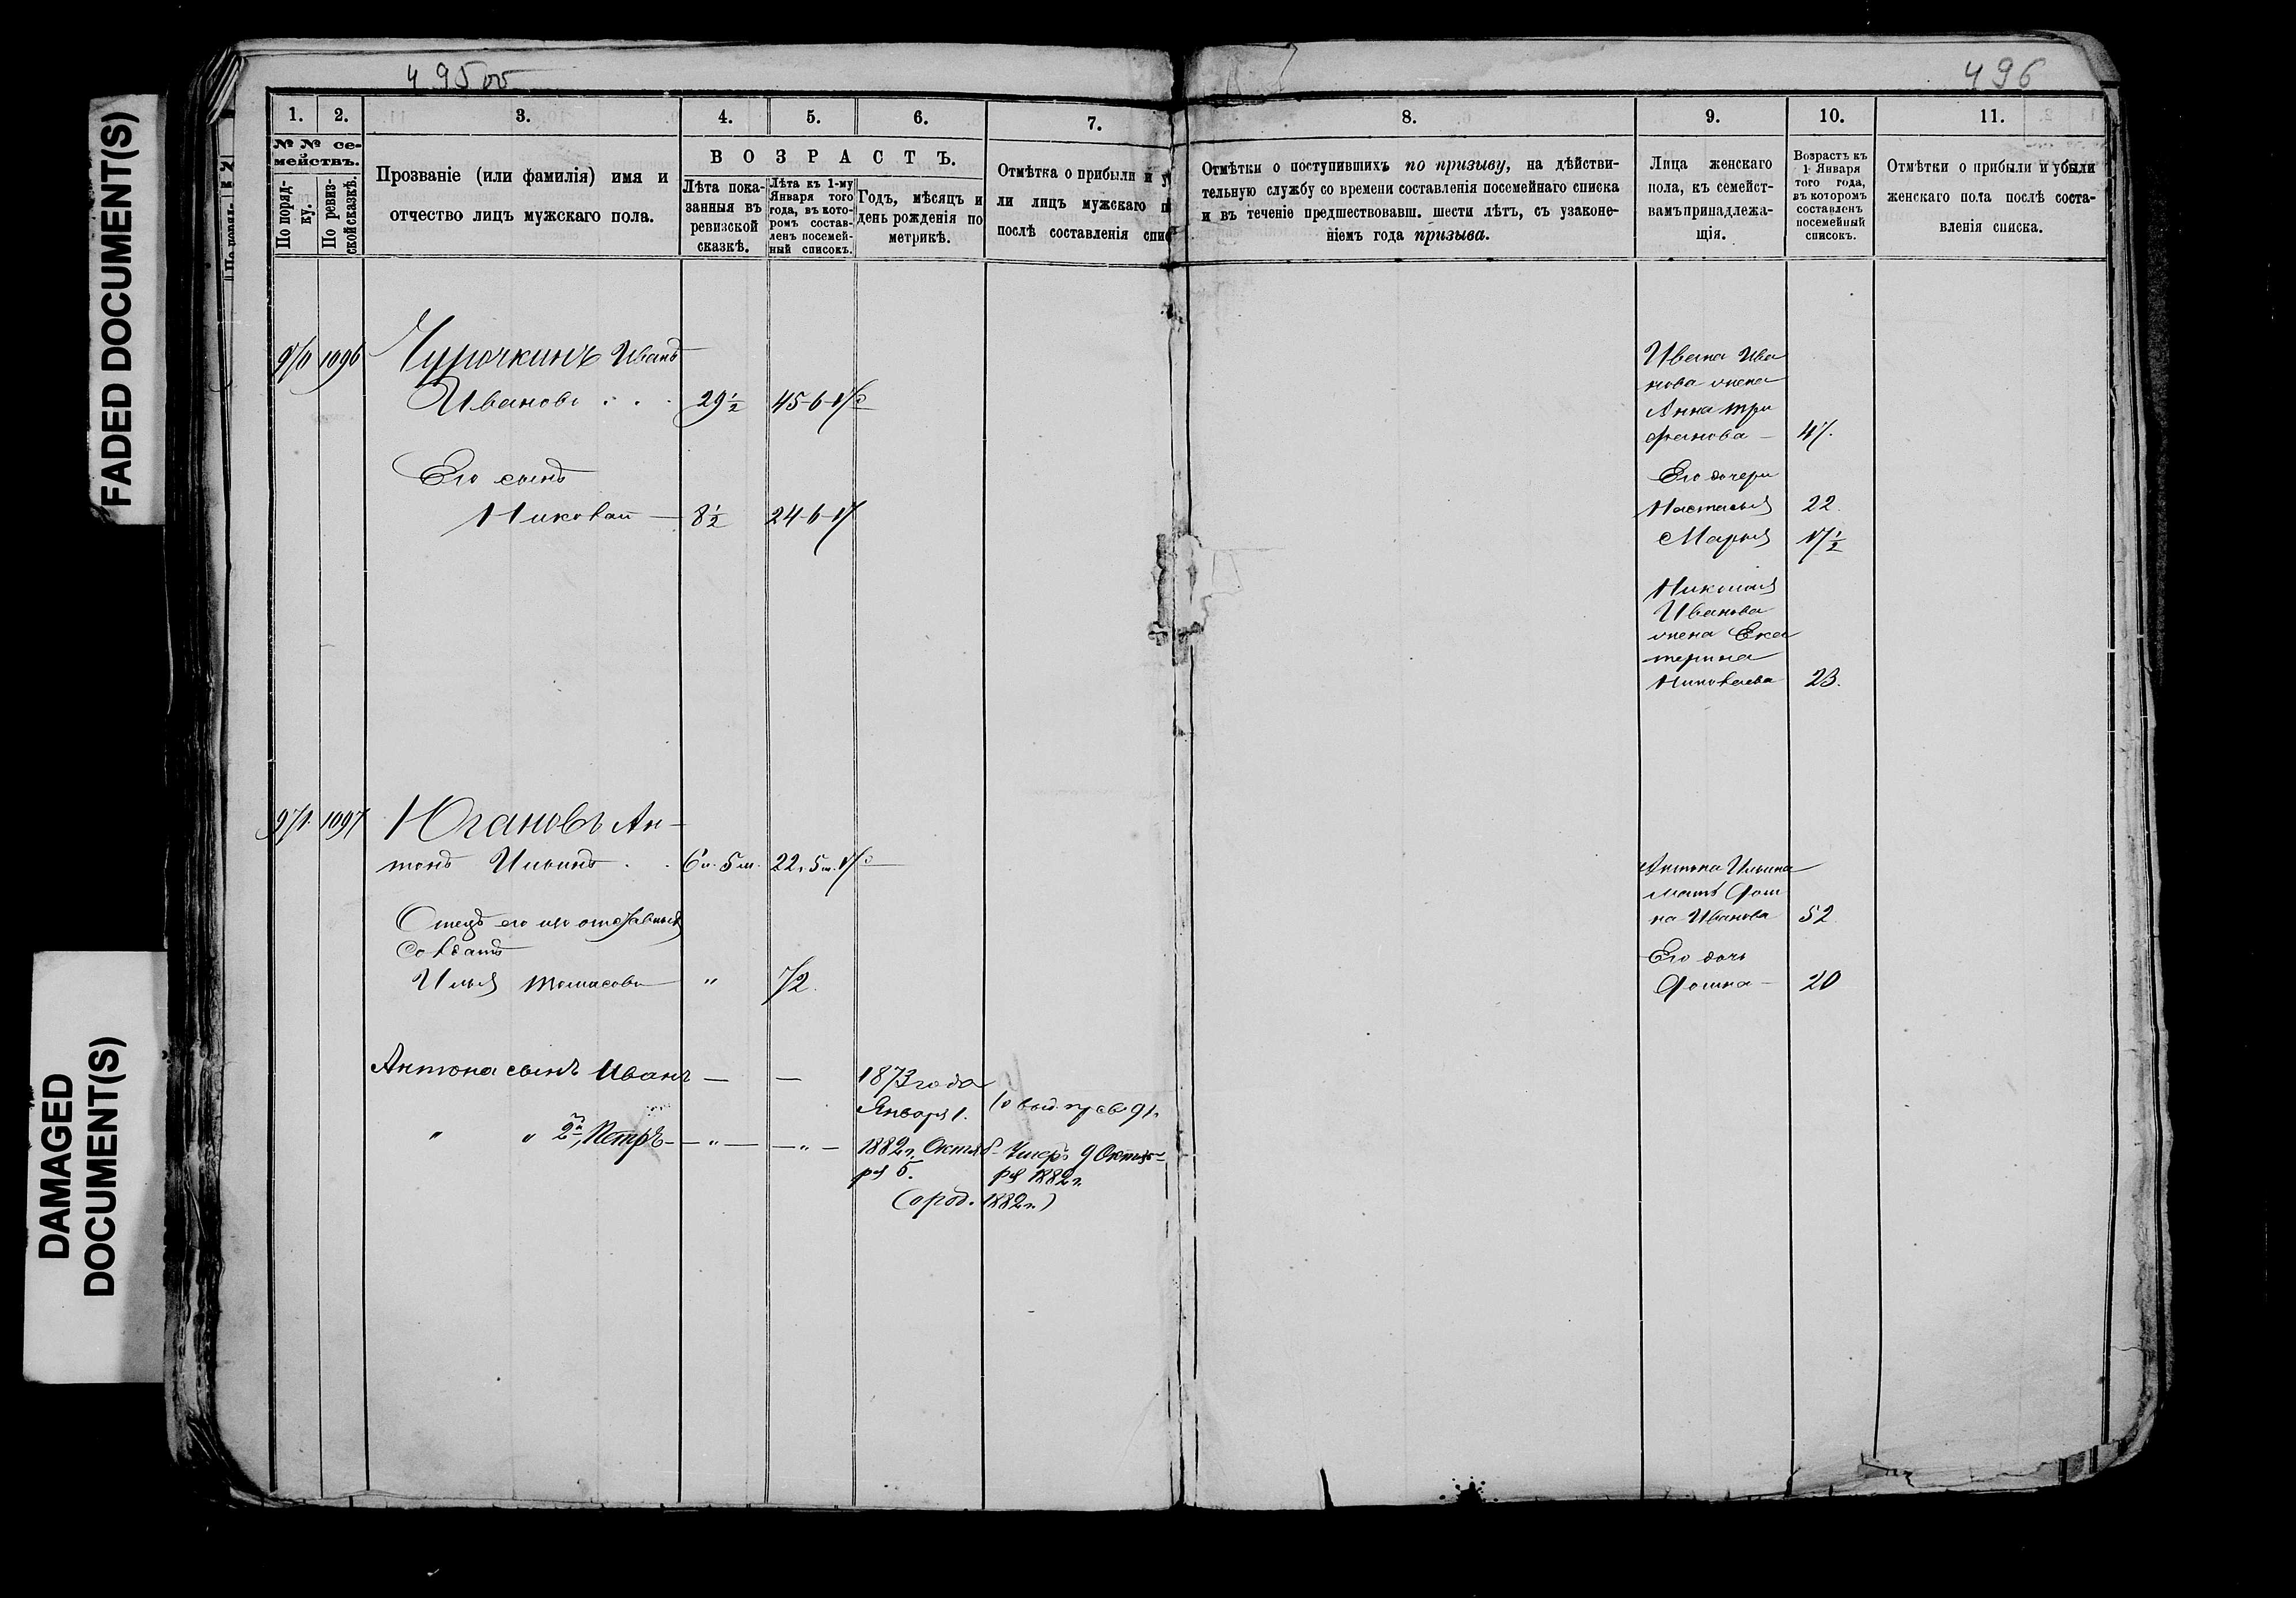 FADED DOCUMENT(S)
DAMAGED
DOCUMENT(S)
495об
496
1.
2.
3.
4.
5.
6.
7.
8.
9.
10.
11.
№ № се-
мействъ.
По поряд-
ку.
По ревиз-
ской сказкѣ.
Прозваніе (или фамилія) имя и
отчество лицъ мужскаго пола.
ВОЗРАСТЪ.
Лѣта пока-
занныя въ
ревизской
сказкѣ.
Лѣта къ 1-му
Января того
года, въ кото-
ромъ состав-
ленъ посемей-
ный списокъ.
Годъ, мѣсяцъ и
день рожденія по
метрикѣ.
Отмѣтка о прибыли и у
ли лицъ мужскаго п
послѣ составленія спис
Отмѣтки о поступившихъ по призыву, на дѣйстви-
тельную службу со времени составленія посемейнаго списка
и въ теченіе предшествовавш. шести лѣтъ, съ узаконе-
ніемъ года призыва.
Лица женскаго
пола, къ семейст-
вамъ принадлежа-
щія.
Возрастъ къ
1 Января
того года,
въ которомъ
составленъ
посемейный
списокъ.
Отмѣтки о прибыли и убыли
женскаго пола послѣ соста-
вленія списка.
970 1096 Чурочкинъ Иванъ
Ивановъ 29½ 45-6-
Его сынъ
Николай 8½ 24-6-
Ивана Ива
нова жена
Анна Три
фанова 47.
Его дочери
Настасья 22.
Марья 17½
Николая
Иванова
жена Ека
терина
Николаева 23.
971 1097 Югановъ Ан-
тонъ Ильинъ 6л. 5м. 22.5м.
Отецъ его
Солдатъ
Илья Томасовъ " 72.
Антона сынъ Иванъ — — 1873 года
Января 1.
" " 2й, Петръ — " — — " — 1882г. Октяб-
ря 5.
Умеръ 9 Октяб-
ря 1882г.
1882г.)
Антона Ильина
мать
на Иванова 52.
Его дочь
20